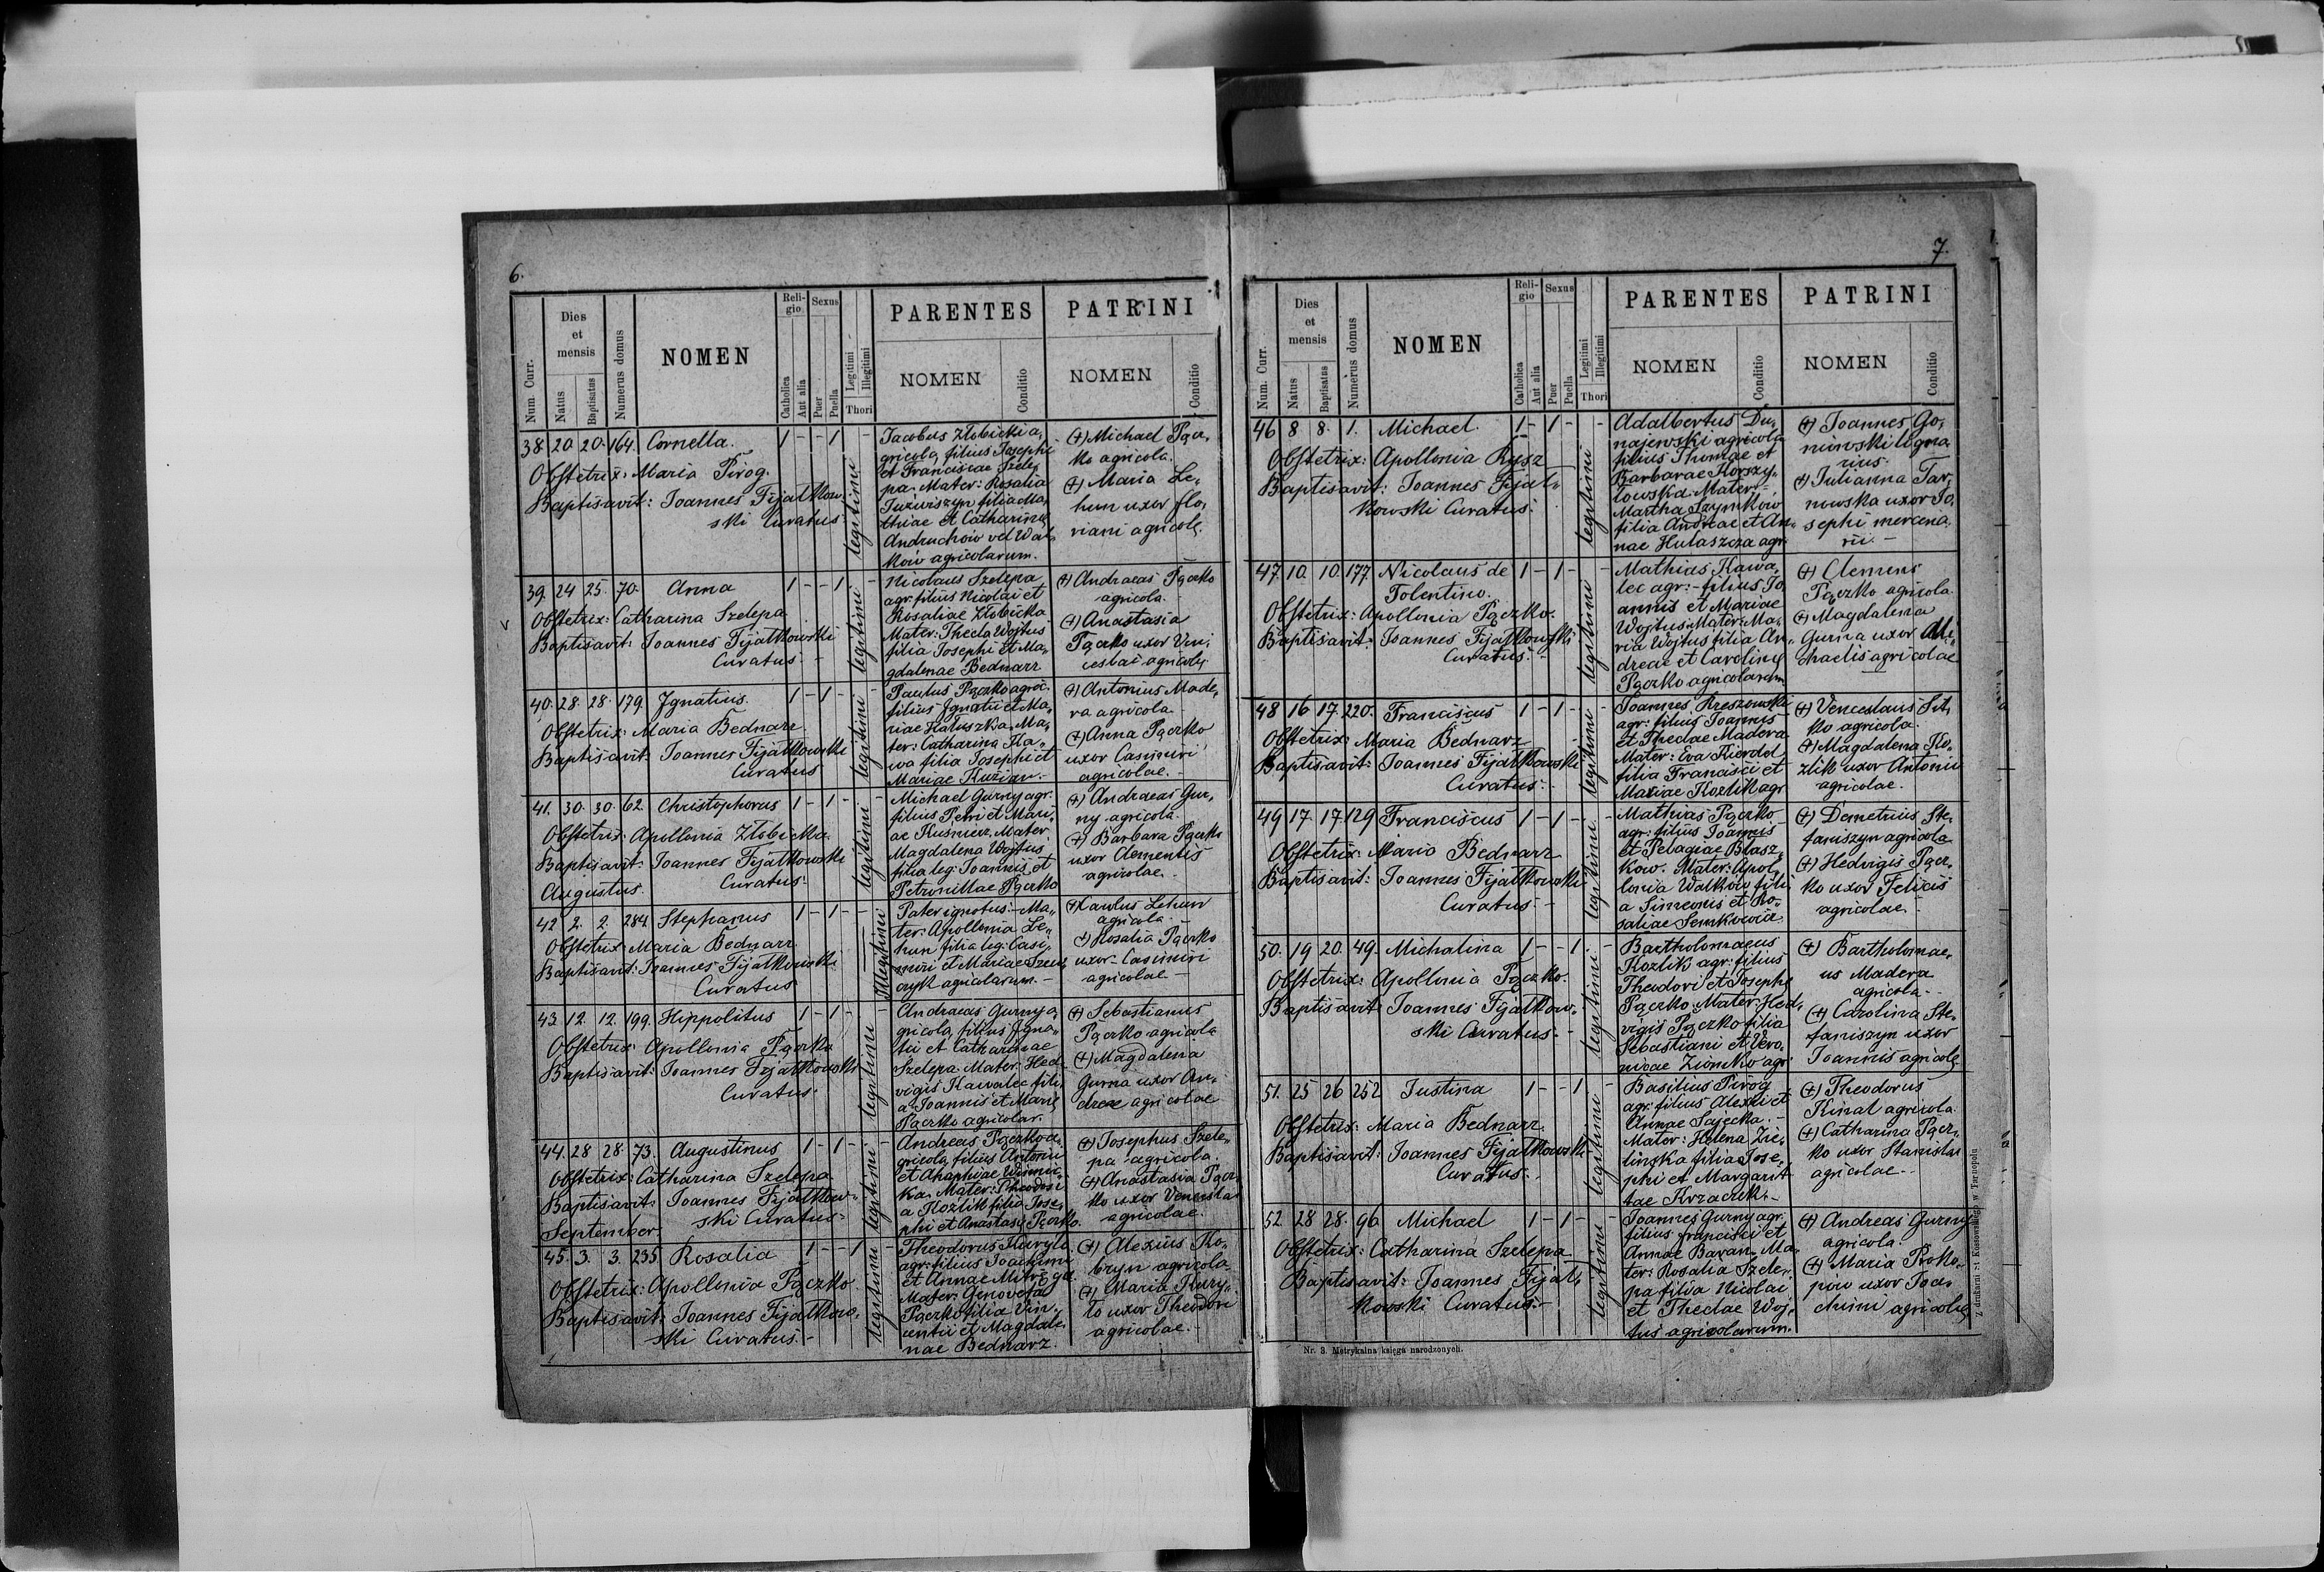 6.
Num. Curr.
Dies et mensis
Natus
Baptisatus
Numerus domus
NOMEN
Religio
Catholica
Aut alia
Sexus
Puer
Puella
Legitimi
Illegitimi
Thori
PARENTES
NOMEN
Conditio
PATRINI
NOMEN
Conditio
38. 20. 20. 164. Cornella. 1 - - 1 -
Obstetrix: Maria Pirog.
Baptisavit: Joannes Fijałkow-
ski Curatus.
legitimi
Jacobus Złobicki a,
gricola, filius Josephi
et Franciscae Szele,
pa. Mater: Rosalia
filia Ma,
thiae et Catharinę
Andruchow vel Wal,
ków agricolarum.
(+) Michael Pącz,
ko agricola.
(+) Maria Le,
hun uxor Flo,
riani agricolę.
39. 24 25. 70. Anna 1 - - 1 -
Obstetrix: Catharina Szelepa
Baptisavit: Joannes Fijałkowski
Curatus. -
legitimi
Nicolaus Szelepa
agr. filius Nicolai et
Rosaliae Złobicka
Mater: Thecla Wojtus
filia Josephi et Ma,
gdalenae Bednarz
(+) Andraeas Pączko
agricola.
(+) Anastasia
Pączko uxor
agricolę
40. 28. 28. 179. Ignatius. 1 - 1 - -
Obstetrix: Maria Bednarz
Baptisavit: Joannes Fijałkowski
Curatus
legitimi
Paulus Pączko agric.
filius Ignatii et Ma,
riae Hałuszka. Ma,
ter: Catharina Ka,
wa filia Josephi et
Mariae
(+) Antonius Made,
ra agricola
(+) Anna Pączko
uxor Casimiri
agricolae. -
41. 30. 30. 62. Christophorus 1 - 1 - -
Obstetrix: Apollonia Złobicka
Baptisavit: Joannes Fijałkowski
Augustus. Curatus.
legitimi
Michael Gurny agr.
filius Petri et Mari,
ae Kusnierz. Mater
Magdalena Wojtus
filia leg: Joannis et
Petronillae Pączko
(+) Andraeas Gur,
ny agricola.
(+) Barbara Pączko
uxor Clementis
agricolae.
42. 2. 2. 284. Stephanus 1 - 1 - -
Obstetrix: Maria Bednarz
Baptisavit: Joannes Fijałkowski
Curatus
Illegitimi
Pater ignotus. Ma,
ter: Apollonia Le,
hun filia leg: Casi,
miri et Mariae
agricolarum. -
(+) Paulus Lehun
agricola
(+) Rosalia Pączko
uxor Casimiri
agricolae -
43. 12. 12. 199. Hippolitus 1 - 1 - -
Obstetrix: Apollonia Pączko
Baptisavit: Joannes Fijałkowski
Curatus.
legitimi
Andraeas Gurny a,
gricola, filius Igna,
tii et Catharinae
Szelepa. Mater: Hed,
vigis Kawalec fili,
a Joannis et Marię
Pączko agricolar.
(+) Sebastianus
Pączko agricola
(+) Magdalena
Gurna uxor An,
dreae agricolae
44. 28 28. 73. Augustinus 1 - 1 - -
Obstetrix: Catharina Szelepa
Baptisavit: Joannes Fijałkow-
September. ski Curatus.
legitimi
Andreas Pączko a,
gricola, filius Antonii
et Ahaphiae
ka. Mater: Theodosi
a Kozlik filia Jose,
phi et Anastasię Pączko.
(+) Josephus Szele,
pa agricola.
(+) Anastasia Pącz,
ko uxor Venceslai
agricolae.
45. 3. 3. 235. Rosalia 1 - - 1 -
Obstetrix: Apollonia Pączko
Baptisavit: Joannes Fijałkow,
ski Curatus. -
legitimi
Theodorus Kuryło
agr: filius Joachimi
et Annae
Mater: Genovefa
Pączko filia Vin,
centii et Magdale,
nae Bednarz.
(+) Alexius Ko,
bryn agricola
(+) Maria Kury,
ło uxor Theodori
agricolae. -
7.
Num. Curr.
Dies et mensis
Natus
Baptisatus
Numerus domus
NOMEN
Religio
Catholica
Aut alia
Sexus
Puer
Puella
Legitimi
Illegitimi
Thori
PARENTES
NOMEN
Conditio
PATRINI
NOMEN
Conditio
46 8 8. 1. Michael. 1 - 1 - -
Obstetrix: Apollonia Rysz
Baptisavit: Joannes Fijał,
kowski Curatus.
legitimi
Adalbertus Du,
najewski agricola
filius Thomae et
Barbarae Korszy,
łowska. Mater:
Martha Szymków
filia Andreae et An,
nae Hułaszcza agr.
(+) Joannes Go,
niowski ligna,
rius.
(+) Julianna Tar,
nowska uxor Jo,
sephi mercena,
rii. -
47. 10. 10. 177. Nicolaus de 1 - 1 - -
Tolentino.
Obstetrix: Apollonia Pączko.
Baptisavit: Joannes Fijałkowski
Curatus. -
legitimi
Mathias Kawa,
lec agr: - filius Jo,
annis et Mariae
Wojtus. Mater: Ma,
ria Wojtus filia An,
dreae et Carolinę
Pączko agricolarum.
(+) Clemens
Pączko agricola.
(+) Magdalena
Gurna uxor Mi,
chaelis agricolae
48 16 17. 220. Franciscus 1 - 1 - -
Obstetrix: Maria Bednarz
Baptisavit: Joannes Fijałkowski
Curatus.
legitimi
Joannes Kreszowski
agr: filius Joannis
et Theclae Madera
Mater: Eva Kierdol
filia Francisci et
Mariae Kozlik agr
(+) Venceslaus Sit,
ko agricola.
(+) Magdalena Ko,
zlik uxor Antonii
agricolae.
49 17. 17. 129 Franciscus 1 - 1 - -
Obstetrix: Maria Bednarz
Baptisavit: Joannes Fijałkowski
Curatus. -
legitimi
Mathias Pączko
agr: filius Joannis
et Pelagiae Błasz,
kow. Mater: Apol,
lonia Walków fili,
a Simeonis et Ro,
saliae Semkowicz
(+) Demetrius Ste,
faniszyn agricola
(+) Hedvigis Pącz,
ko uxor Felicis
agricolae. -
50. 19 20. 49. Michalina 1 - - 1. -
Obstetrix: Apollonia Pączko.
Baptisavit: Joannes Fijałkow,
ski Curatus. -
legitimi
Bartholomaeus
Kozlik agr: filius
Theodori et Josephę
Pączko. Mater: Hed,
vigis Pączko filia
Sebastiani et Vero,
nicae Ziomko agr.
(+) Bartholomae,
us Madera
agricola. -
(+) Carolina Ste,
faniszyn uxor
Joannis agricolę
51. 25 26 252 Justina 1 - - 1. -
Obstetrix: Maria Bednarz.
Baptisavit: Joannes Fijałkowski
Curatus. -
legitimi
Basilius Pirog
agr: filius Alexii et
Annae Sajecka. -
Mater: Helena Zie,
lińska filia Jose,
phi et Margarit
tae Krzaczek. -
(+) Theodorus
Kinal agricola.
(+) Catharina Pącz,
ko uxor Stanislai
agricolae. -
52. 28 28. 96. Michael 1 - 1 - -
Obstetrix: Catharina Szelepa
Baptisavit: Joannes Fijał,
kowski Curatus. -
legitimi
Joannes Gurny agr.
filius Francisci et
Annae Baran. Ma,
ter: Rosalia Szele,
pa filia Nicolai
et Theclae Woj,
tus agricolarum.
(+) Andreas Gurny
agricola.
(+) Maria Proko,
pow uxor Joa,
chimi agricolę
Nr. 3. Metrykalna księga narodzonych.
Z drukarni St. Kossowskiego w Tarnopolu